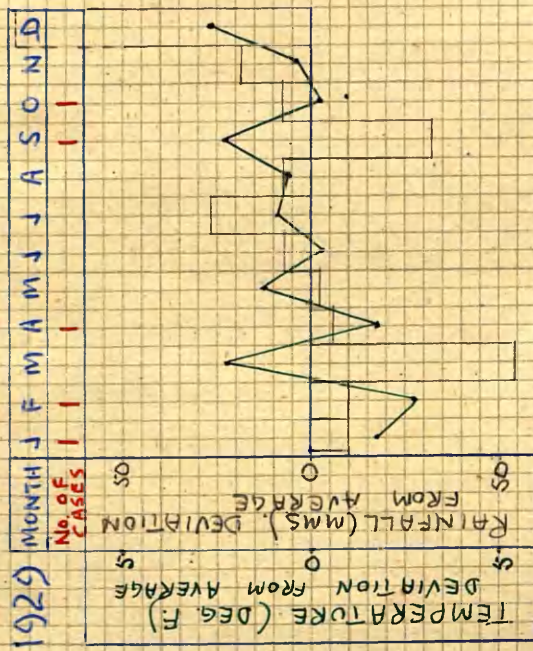 1929 MONTH J F M A M J J A S O N D
No. OF
CASES
1 1 1 1 1
TEMPERATURE (DEG. F.)
DEVIATION FROM AVERAGE
5 0 5
RAINFALL (MMS). DEVIATION
FROM AVERAGE
50 0 50